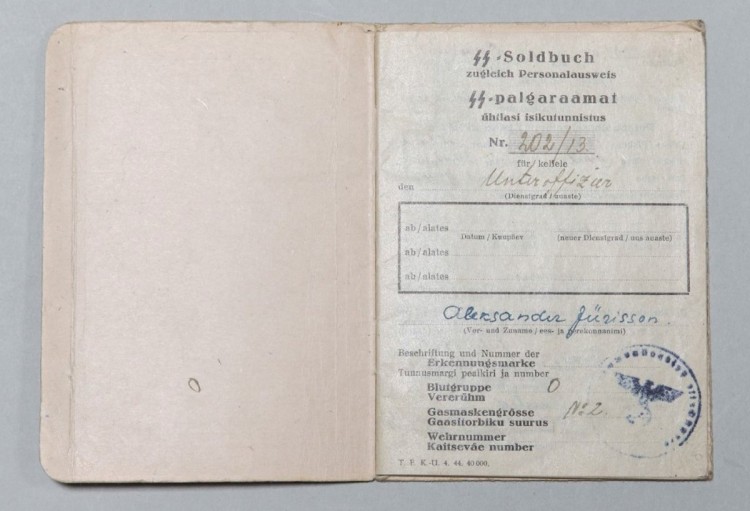 ᛋᛋ-Soldbuch
zugleich Personalausweis
ᛋᛋ-palgaraamat
ühtlasi isikutunnistus
Nr. 202/13.
für / kellele
den Unteroffizier
(Dienstgrad / auaste)
ab / alates
Datum / Kuupäev (neuer Dienstgrad / uus auaste)
ab / alates
ab / alates
Aleksander Jürisson.
(Vor- und Zuname / ees- ja perekonnanimi)
Beschriftung und Nummer der
Erkennungsmarke
Tunnusmärgi pealkiri ja number
Blutgruppe O
Vererühm
Gasmaskengrösse № 2.
Gaasitorbiku suurus
Wehrnummer
Kaitseväe number
T. E. K.-U. 4. 44. 40000.
O